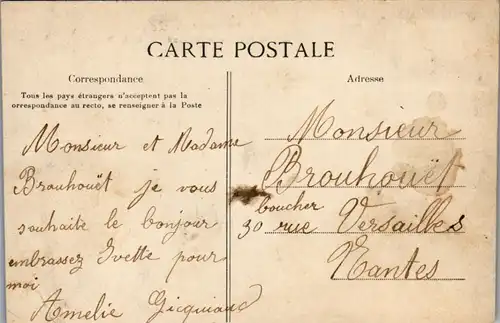 CARTE POSTALE
Correspondance
Tous les pays étrangers n'acceptent pas la
orrespondance au recto, se renseigner à la Poste
Monsieur et Madame
Brouhouët je vous
souhaite le bonjour
embrassez Ivette pour
moi
Amelie
Adresse
Monsieur
Brouhouët
boucher
30 rue Versailles
Nantes